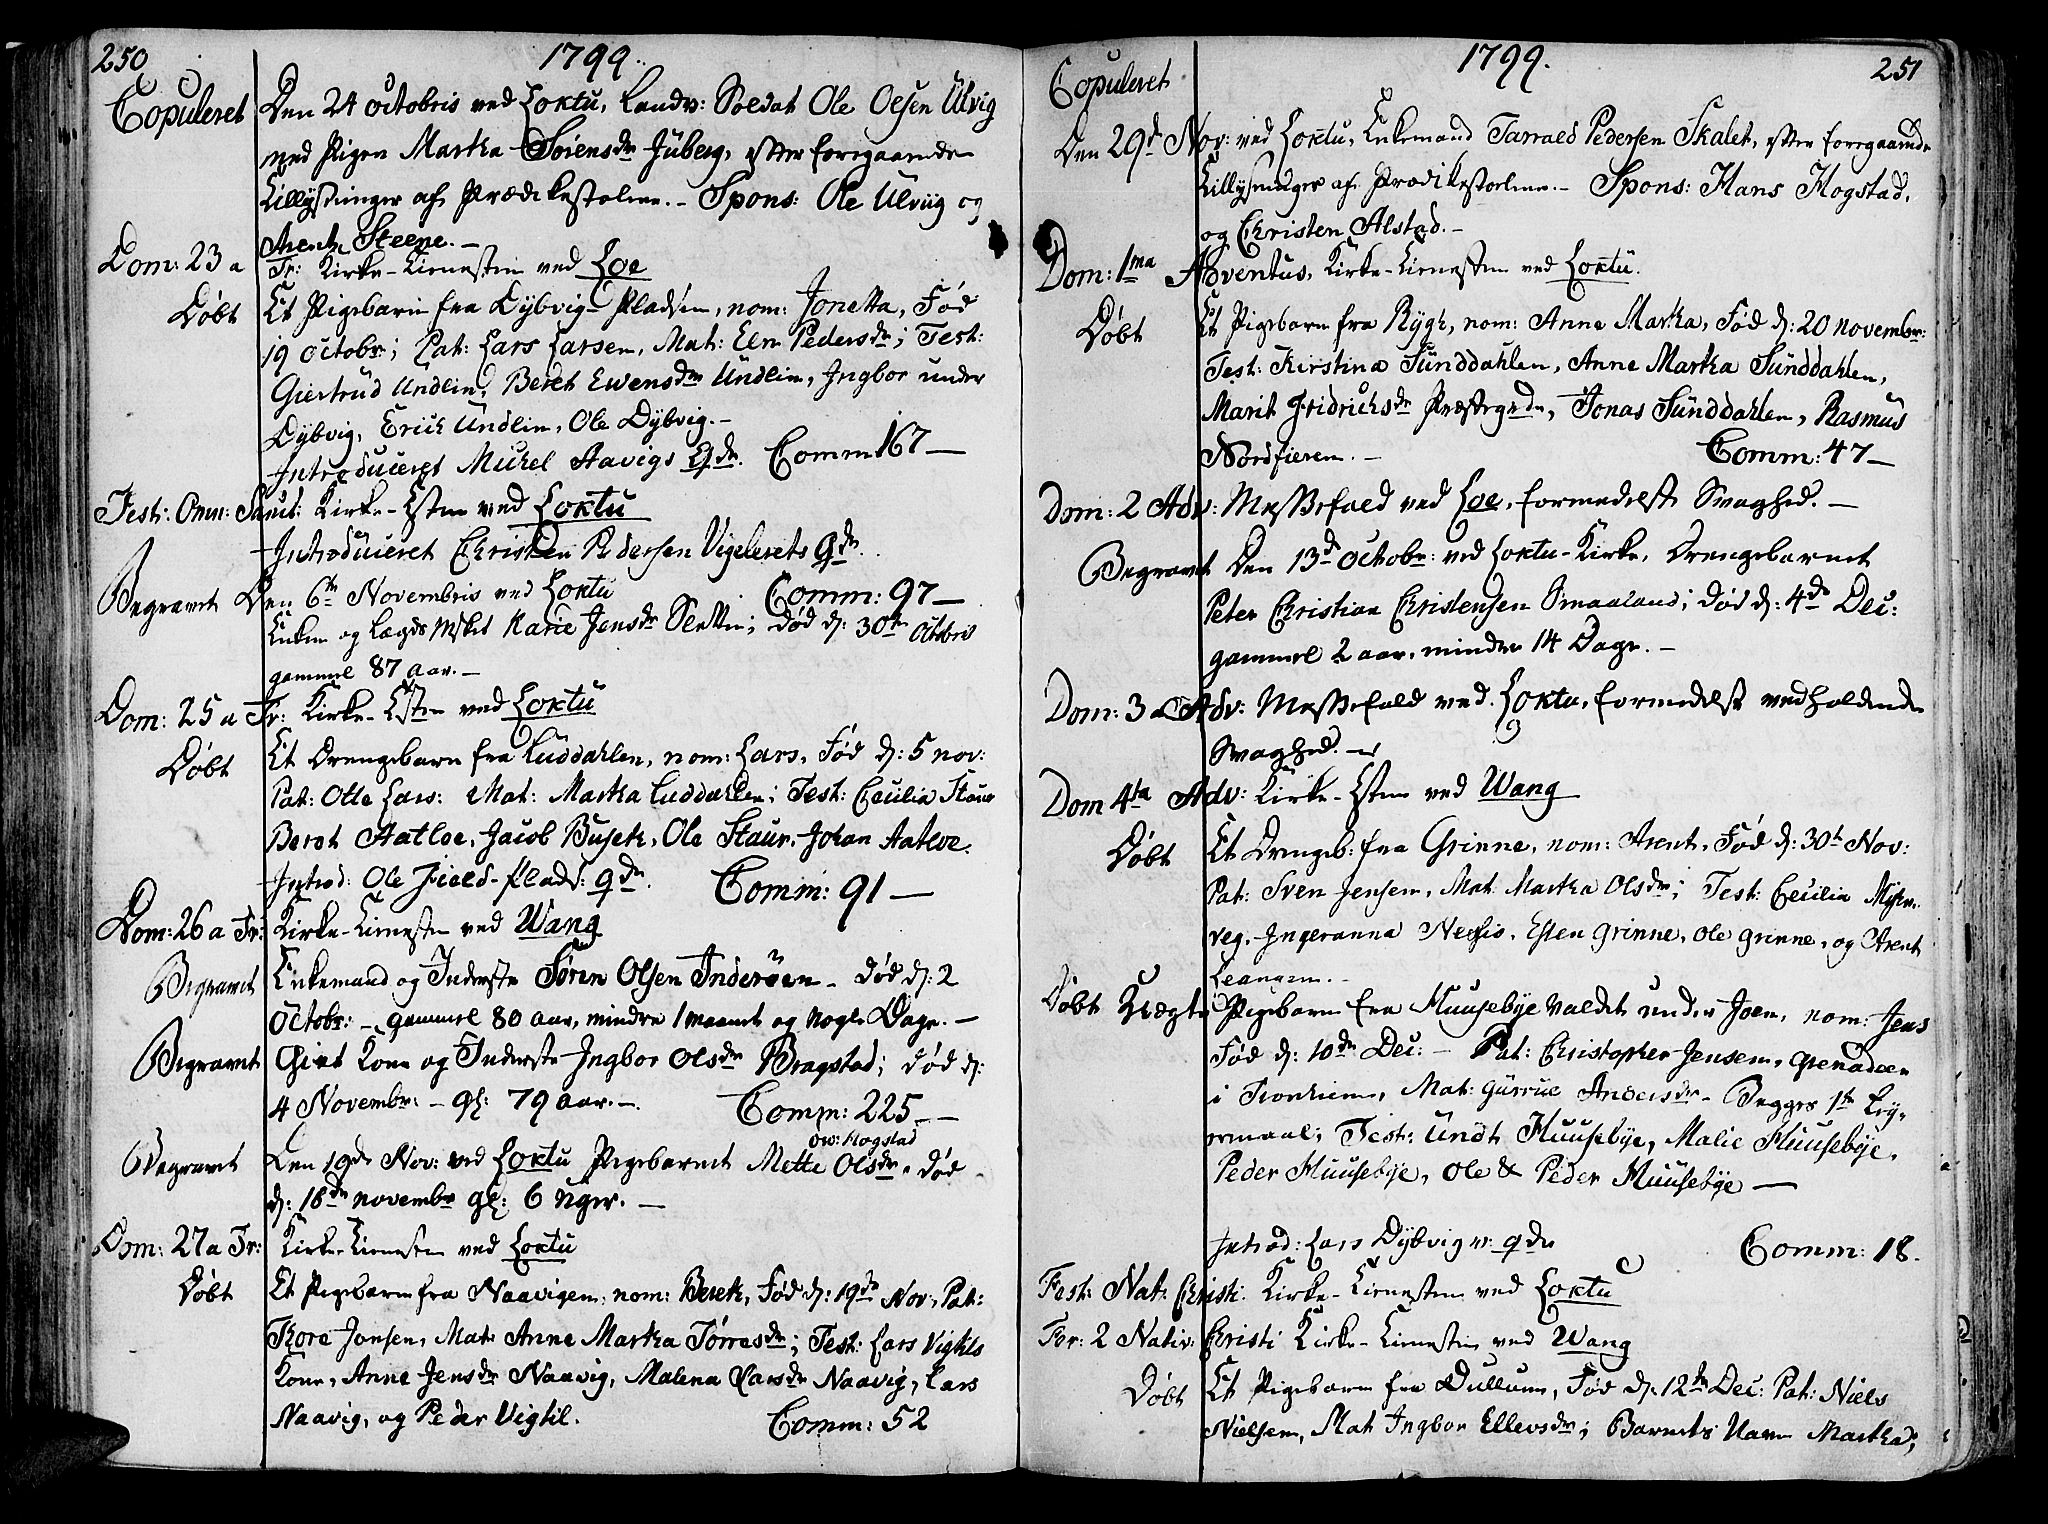 250
1799.
Copuleret Den 24 Octobris ved Loktu, Landv: Soldat Ole Olsen Ulvig
med Pigen Martha Sørensdr Juberg, efter foregaaende
Tillysninger af Prædikestolene. - Spons: Ole Ulviig og
Arent Steene. -
Dom: 23 a Tr: Kirke-Tienesten ved Loe
Døbt Et Pigebarn fra Dybvig-Pladsen, nom: Jonetta, Fød
19 Octobr; Pat: Lars Larsen, Mat: Elen Pedersdr; Test:
Giertrud Undlin, Beret Ewensdr Undlin, Ingbor under
Dybvig, Erich Undlin, Ole Dybvig. -
Introduceret Michel Aavigs Qde. Comm 167 -
Fest: Omn: Sanct: Kirke-Tjsten ved Loktu
Introduceret Christen Pedersen Vigelerets Qde.
Begravet Den 6te Novembris ved Loktu Comm: 97 -
Enken og Lægds Karie Jensdr ; død d: 30te Octobris
gammel 87 aar. -
Dom: 25 a Tr: Kirke-Tjsten ved Loktu
Døbt Et Drengebarn fra Luddahlen, nom: Lars, Fød d: 5 nov:
Pat: Otte Lars: Mat: Martha Luddahlen; Test: Cecilia Staur
Beret Aatloe, Jacob Buseth, Ole Staur, Johan Aatloe.
Introd: Ole Field-Plads: Qde. Comm: 91 -
Dom: 26 a Tr: Kirke-Tienesten ved Wang
Begravet Enkemand og Inderste Søren Olsen Inderøen - død d: 2
Octobr: - gammel 80 aar, mindre 1 maanet og nogle Dage. -
Begravet Givt Kone og Inderste Ingbor Olsdr Bragstad; død d:
4 Novembr: - gl: 79 aar. - Comm: 225 -
ow: Hogstad
Begravet Den 19de Nov: ved Loktu Pigebarnet Mette Olsdr. død
d: 18de novembr gl: 6 uger. -
Dom: 27 a Tr: Kirke-Tienesten ved Loktu
Døbt Et Pigebarn fra Naavigen, nom: Bereth, Fød d: 19de Nov: Pat:
Thore Jonsen, Mat: Anne Martha Tørresdr; Test: Lars Vigtils
Kone, Anne Jensdr Naavig, Malena Larsdr Naavig, Lars
Naavig, og Peder Vigtil. Comm: 52
1799.
251
Copuleret
Den 29d Nov: ved Loktu, Enkemand Tarrald Pedersen Skalet, efter foregaaende
Tillysninger af Prædikestolene. - Spons: Hans Hogstad,
og Christen Alstad. -
Dom: 1ma Adventus, Kirke-Tienesten ved Loktu.
Døbt Et Pigebarn fra Rygh, nom: Anne Martha, Fød d: 20 novembr:
Test: Kirstina Sunddahlen, Anne Martha Sunddahlen,
Marit Fridrichsdr Præstegrden, Jonas Sunddahlen, Rasmus
Nordfieren. - Comm: 47 -
Dom: 2 Adv: Messefald ved Loe, formedelst Svaghed. -
Begravet Den 13de Octobr: ved Loktu-Kirke, Drengebarnet
Peter Christian Christensen Smaaland; død d: 4de Dec:
gammel 2 aar, mindre 14 Dage. -
Dom: 3 a Adv: Messefald ved Loktu, formedelst vedholdende
Svaghed. -
Dom 4ta Adv: Kirke-Tjsten ved Wang
Døbt Et Drengeb: fra Grinne, nom: Arent, Fød d: 30te Nov:
Pat: Sven Jensen, Mat: Martha Olsdr; Test: Cecilia
veg, Ingeranna Nessis, Esten Grinne, Ole Grinne, og Arent
Leangen. -
Døbt Uægte Pigebarn fra Huusebye valdet under Joen, nom: Jens
Fød d: 10de Dec: - Pat: Christopher Jensen, Grenadeer
i Tronhiem, Mat: Gurrue Andersdr - Begges 1te Ley-
ermaal; Test: Undt Huusebye, Malie Huusebye,
Peder Huusebye, Ole & Peder Huusebye -
Introd: Lars Dybvigs: Qde Comm: 18.
Fest: Nat: Christi: Kirke-Tienesten ved Loktu
Fer: 2 Nativ: Christi Kirke-Tienesten ved Wang
Døbt Et Pigebarn fra Dullum, Fød d: 12te Dec: Pat: Niels
Nielsen, Mat Ingbor Ellevsdr; Barnets Navn Martha;